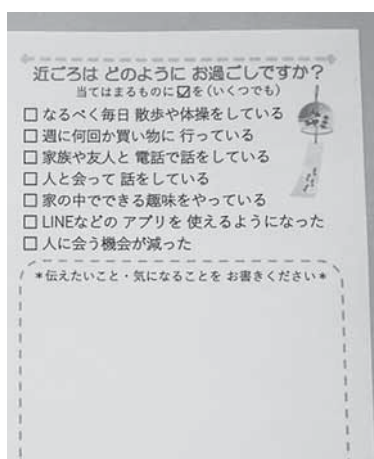 近ごろは どのように お過ごしですか？
当てはまるものに☑を(いくつでも)
□ なるべく毎日 散歩や体操をしている
□ 週に何回か買い物に 行っている
□ 家族や友人と 電話で話をしている
□ 人と会って 話をしている
□ 家の中でできる趣味をやっている
□ LINEなどの アプリを 使えるようになった
□ 人に会う機会が減った
＊伝えたいこと・気になることを お書きください＊